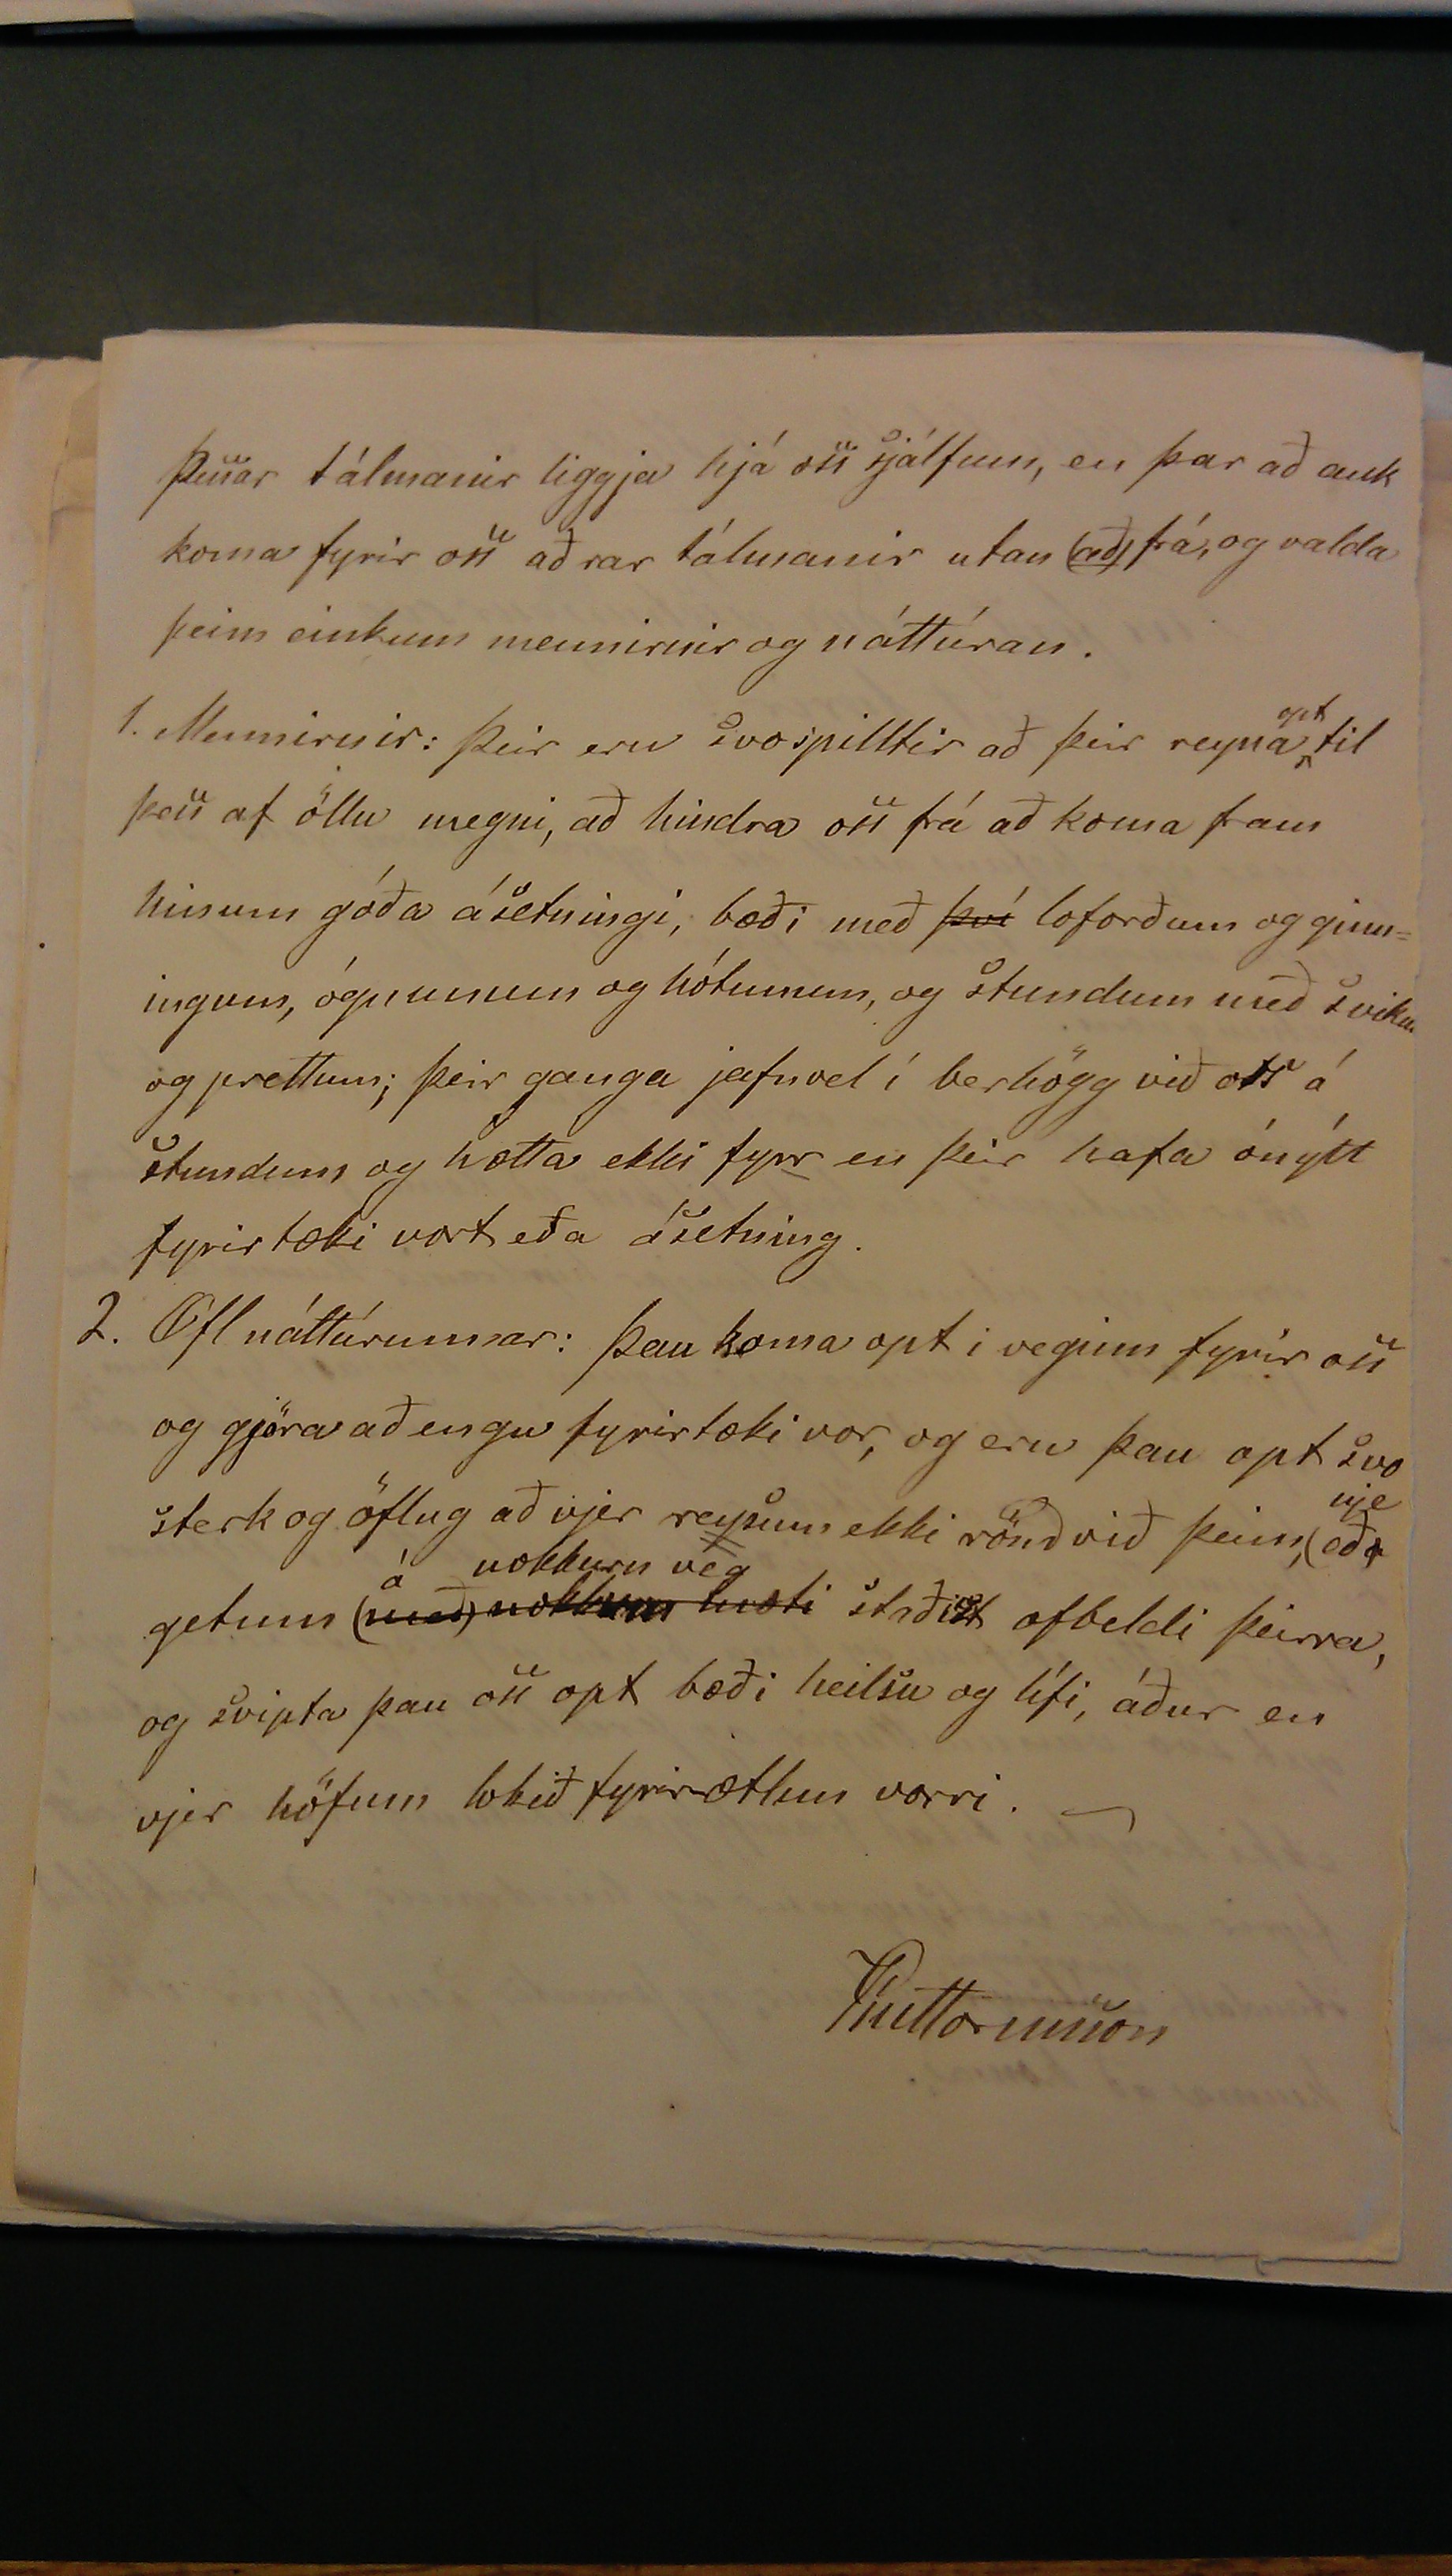 Þessar tálmanir liggja hjá oss sjálfum, en þar að auk
koma fyrir oss aðrar tálmanir utan (að) frá, og valda
þeim einkum mennirnir og náttúran.
1. Mennirnir: Þeir eru svo spilltir að þeir reyna opt til
þess af öllu megni, að hindra oss frá að koma fram
hinum góða ásetningi, bæði með því loforðum og ginn=
ingum, ógnunum og hótunum, og stundum með svikum
og prettum; þeir ganga jafnvel í berhögg við oss á
stundum og hætta ekki fyrr en þeir hafa ónýtt
fyrirtæki vort eða ásetning.
2. Öfl náttúrunnar: Þau koma opt i veginn fyrir oss
og gjöra að engu fyrirtæki vor, og eru þau opt svo
sterk og öflug að vjer reysum ekki rönd við þeim, (eða
nje
á nokkurn veg
getum (með) nokkrum hæti staðist ofbeldi þeirra,
og svipta þau oss opt bæði heilsu og lífi, áður en
vjer höfum lokið fyrirætlun vorri.
Guttormsson